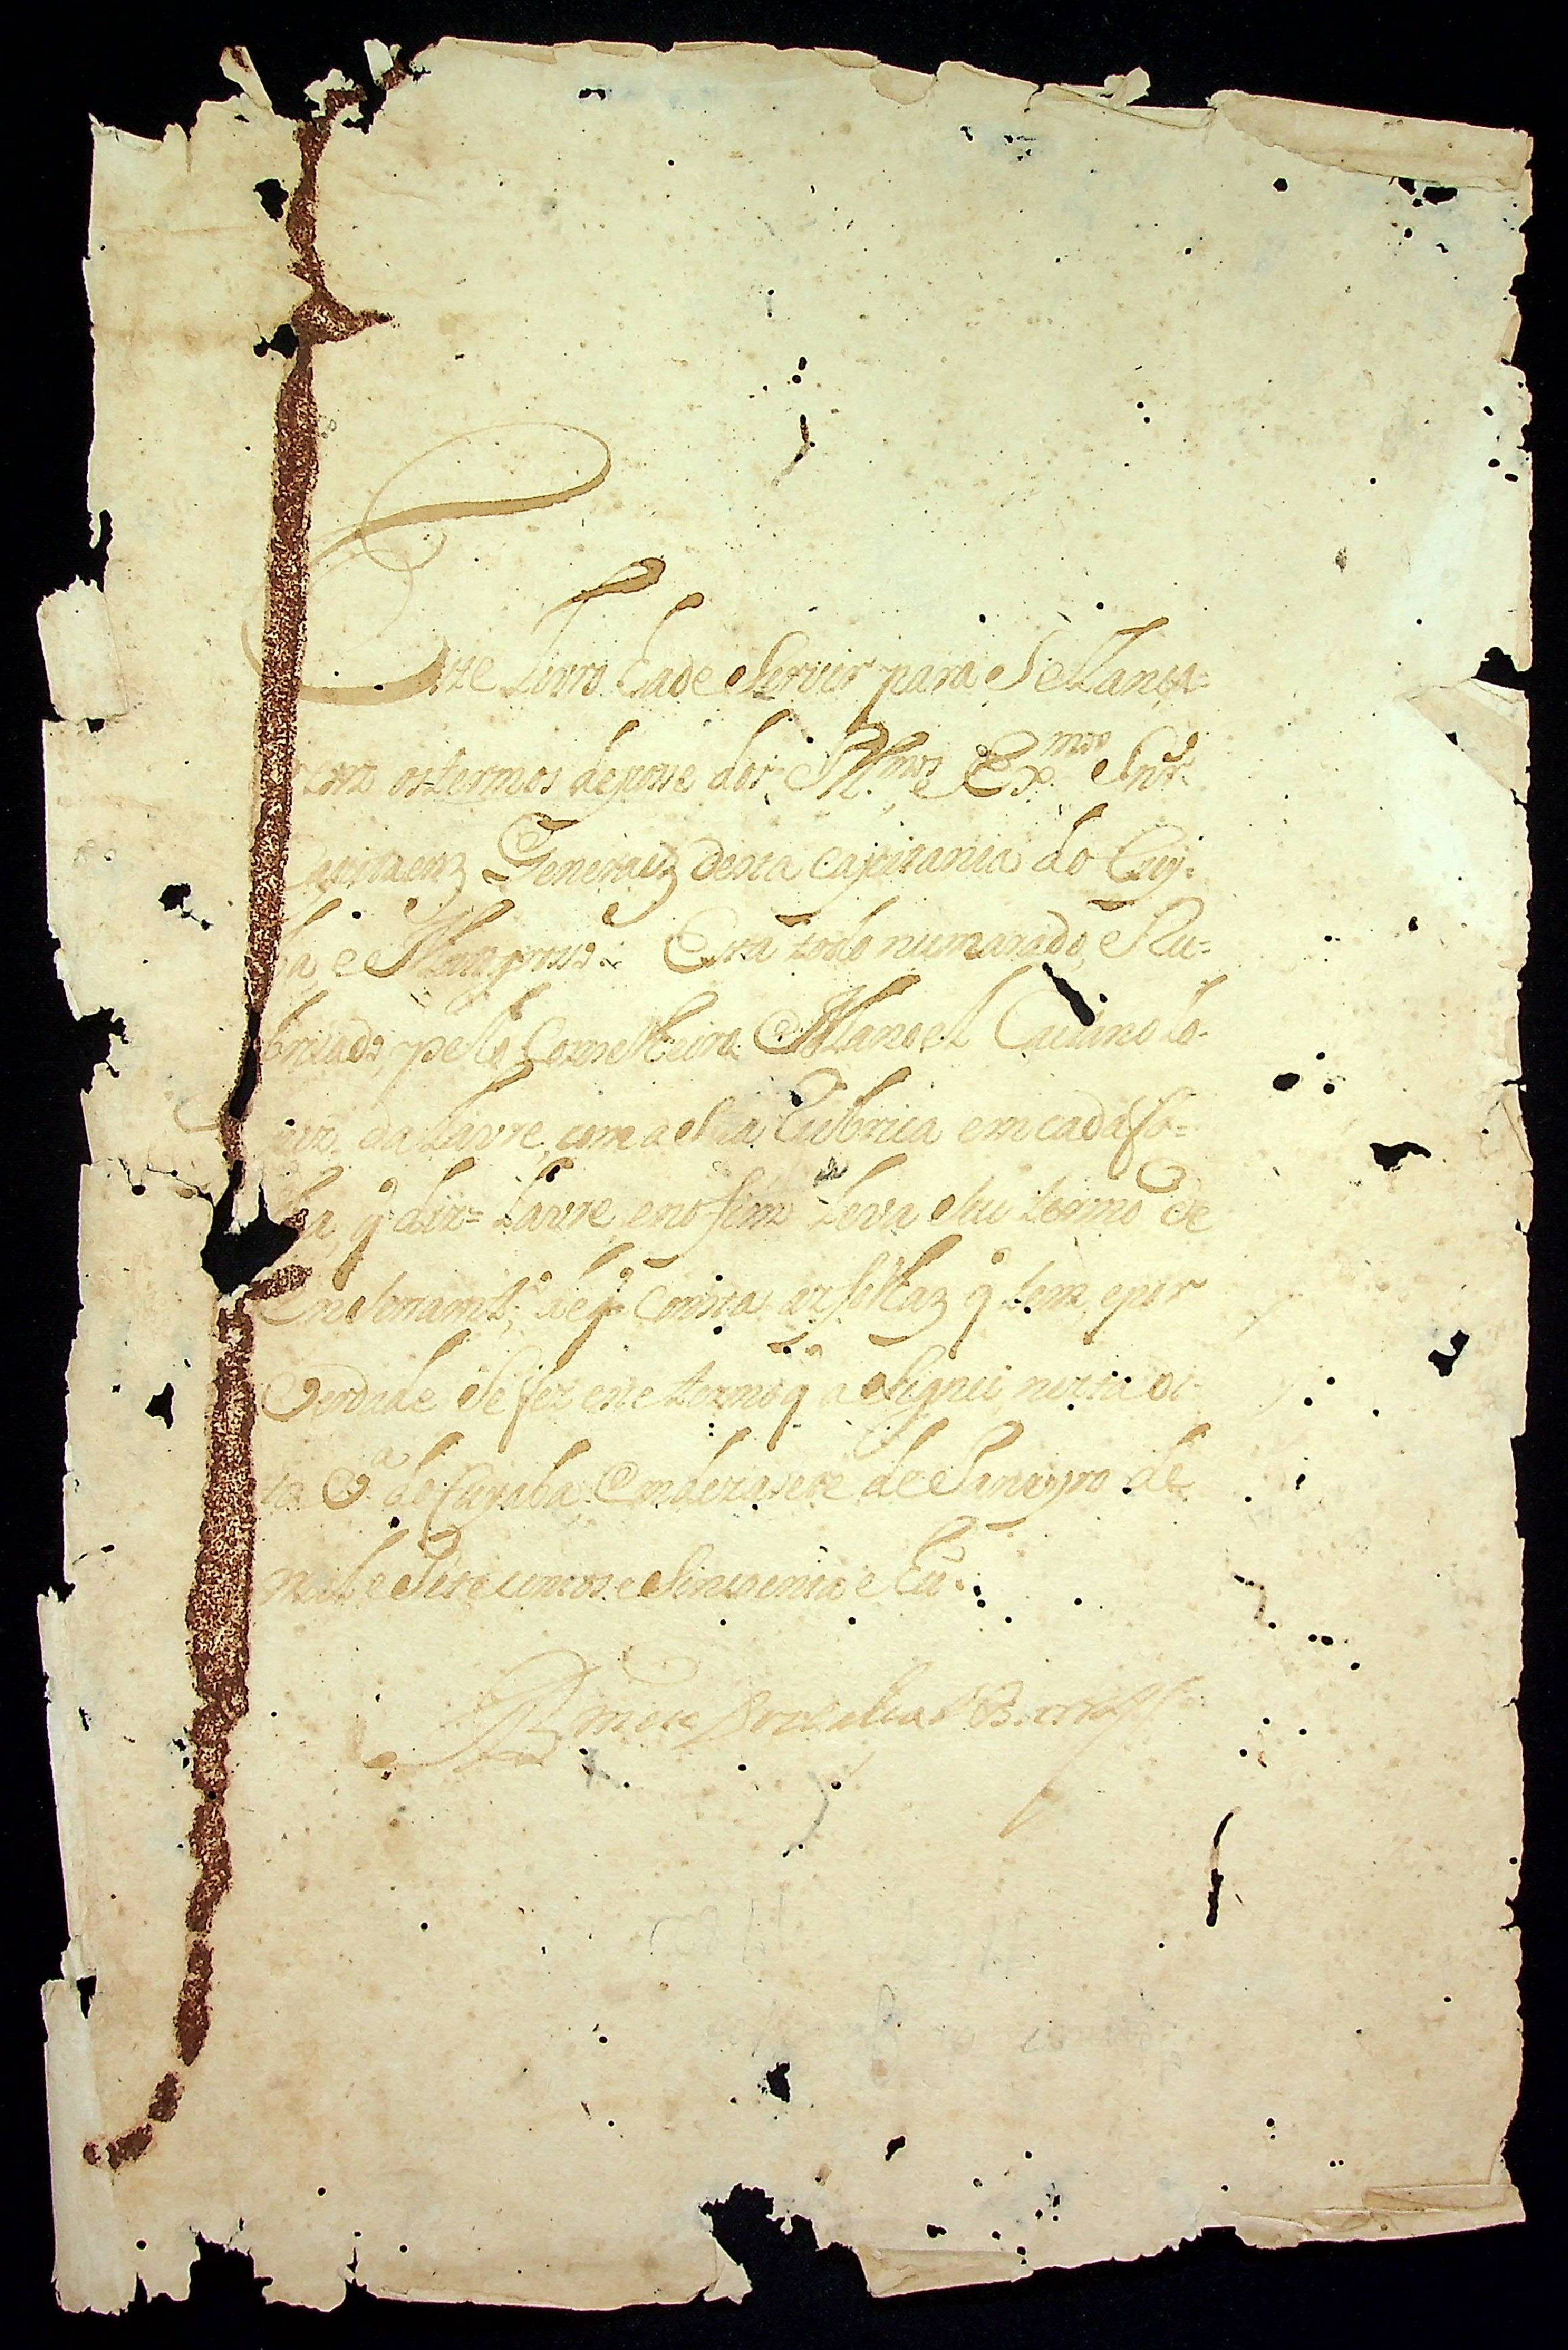 Este Livro hade Servir para Se Lança=
rem os termos de posse dos Ill.mos e Ex.mos Snr.s
Capitaenz Generaez desta capitania do Cuy=
ba, e Matogroso. Esta todo numarado, e Ru=
bricado, pello Conselheiro Manoel Caetano Lo=
da Lavre, com a sua Rubrica em cada fo=
lha, q diz= Lavre, e no fim Leva seu termo de
Enserram.to, de q consta as folhaz q tem, e por
Verdade se fez este termo q asignei nesta di=
ta V.a do Cuyaba em dezasete de Janeyro de
mil e Sete centos e Sincoenta e Eu